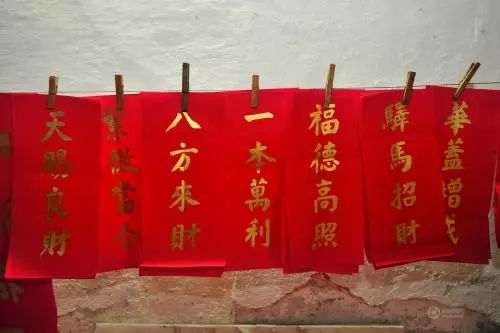 華蓋增
驛馬招財
福德高照
一本萬利
八方來財
微當令
天賜良財